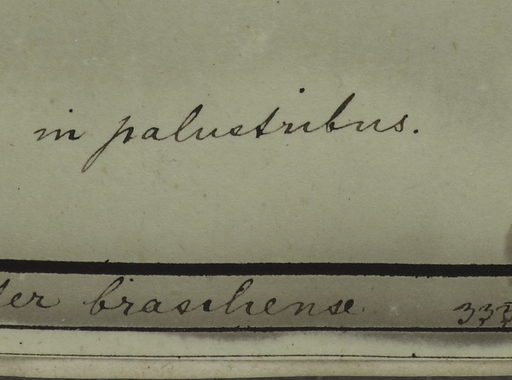 in palustribus.
ter braschense 333